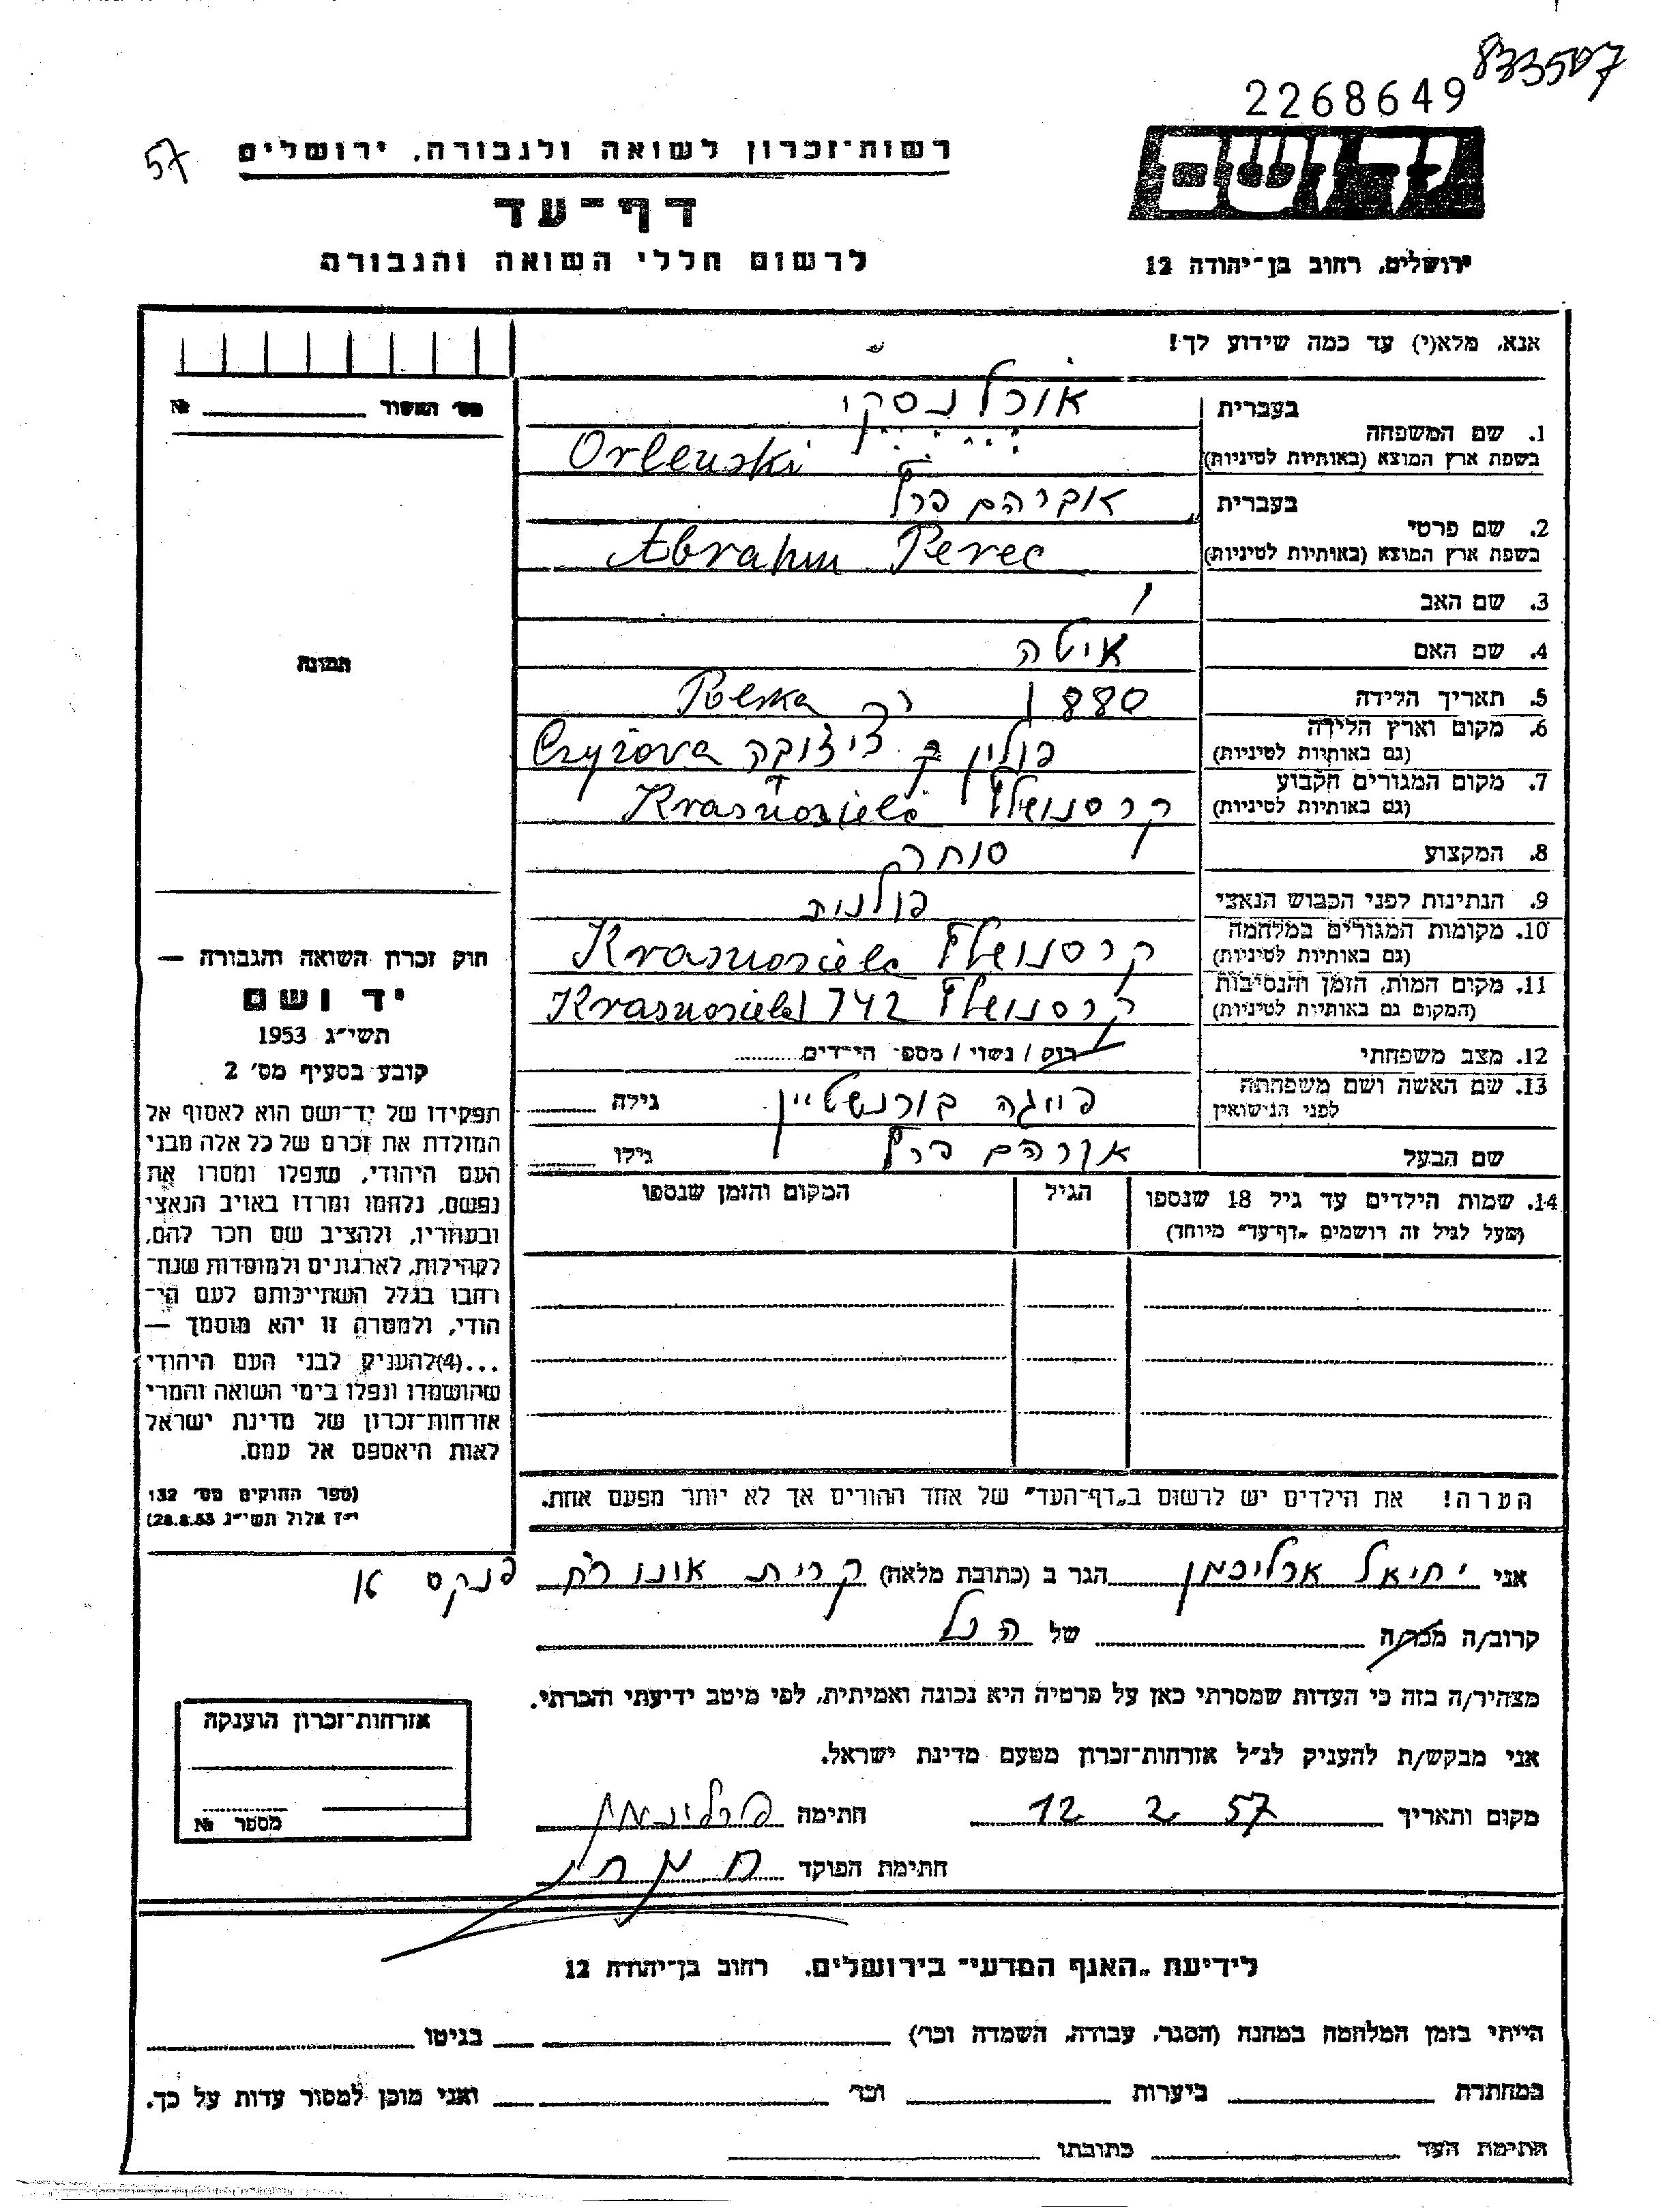 833507
2268649
57
רשות־זכרון לשואה ולגבורה, ירושלים
יד ושם
דף־עד
לרשום חללי השואה והגבורה
ירושלים, רחוב בן־יהודה 12
אנא, מלא(י) עד כמה שידוע לך!
מס׳ האשור № 
בעברית אורלנסקי
1. שם המשפחה
בשפת ארץ המוצא (באותיות לטיניות) Orlenski
בעברית אברהם פרץ
2. שם פרטי
בשפת ארץ המוצא (באותיות לטיניות) Abraham Perec
3. שם האב
4. שם האם איטה
תמונה
5. תאריך הלידה 1880
Polska
6. מקום וארץ הלידה
(גם באותיות לטיניות) פולין Czyżova
7. מקום המגורים הקבוע
(גם באותיות לטיניות) Krasnosielc
8. המקצוע סוחר
9. הנתינות לפני הכבוש הנאצי פולנית
10. מקומות המגורים במלחמה
(גם באותיות לטיניות) Krasnosielc
11. מקום המות, הזמן והנסיבות
(המקום גם באותיות לטיניות) 742 Krasnosielc
12. מצב משפחתי רוק / נשוי / מספר הילדים
13. שם האשה ושם משפחתה
לפני הנישואין פייגה בורנשטיין גילה
שם הבעל אברהם פרץ גילו
14. שמות הילדים עד גיל 18 שנספו הגיל המקום והזמן שנספו
(מעל לגיל זה רושמים „דף־עד״ מיוחד)
חוק זכרון השואה והגבורה —
יד ושם
תשי״ג 1953
קובע בסעיף מס׳ 2
תפקידו של יד־ושם הוא לאסוף אל
המולדת את זכרם של כל אלה מבני
העם היהודי, שנפלו ומסרו את
נפשם, נלחמו ומרדו באויב הנאצי
ובעוזריו, ולהציב שם וזכר להם,
לקהילות, לארגונים ולמוסדות שנח־
רבו בגלל השתייכותם לעם הי־
הודי, ולמטרה זו יהא מוסמך —
...(4)להעניק לבני העם היהודי
שהושמדו ונפלו בימי השואה והמרי
אזרחות־זכרון של מדינת ישראל
לאות היאספם אל עמם.
(ספר החוקים מס׳ 132
י״ז אלול תשי״ג 28.8.53)
הערה! את הילדים יש לרשום ב„דף־העד״ של אחד ההורים אך לא יותר מפעם אחת.
אני יחיאל הגר ב (כתובת מלאה) קרית אונו פנקס
קרוב/ה מכר/ה של הנ״ל
מצהיר/ה בזה כי העדות שמסרתי כאן על פרטיה היא נכונה ואמיתית, לפי מיטב ידיעתי והכרתי.
אני מבקש/ת להעניק לנ״ל אזרחות־זכרון מטעם מדינת ישראל.
מקום ותאריך 12 2 57 חתימה
חתימת הפוקד
אזרחות־זכרון הוענקה
מספר №
לידיעת „האגף המדעי״ בירושלים, רחוב בן־יהודה 12
הייתי בזמן המלחמה במחנה (הסגר, עבודה, השמדה וכו׳) בגיטו
במחתרת ביערות וכו׳ ואני מוכן למסור עדות על כך.
חתימת העד כתובתו